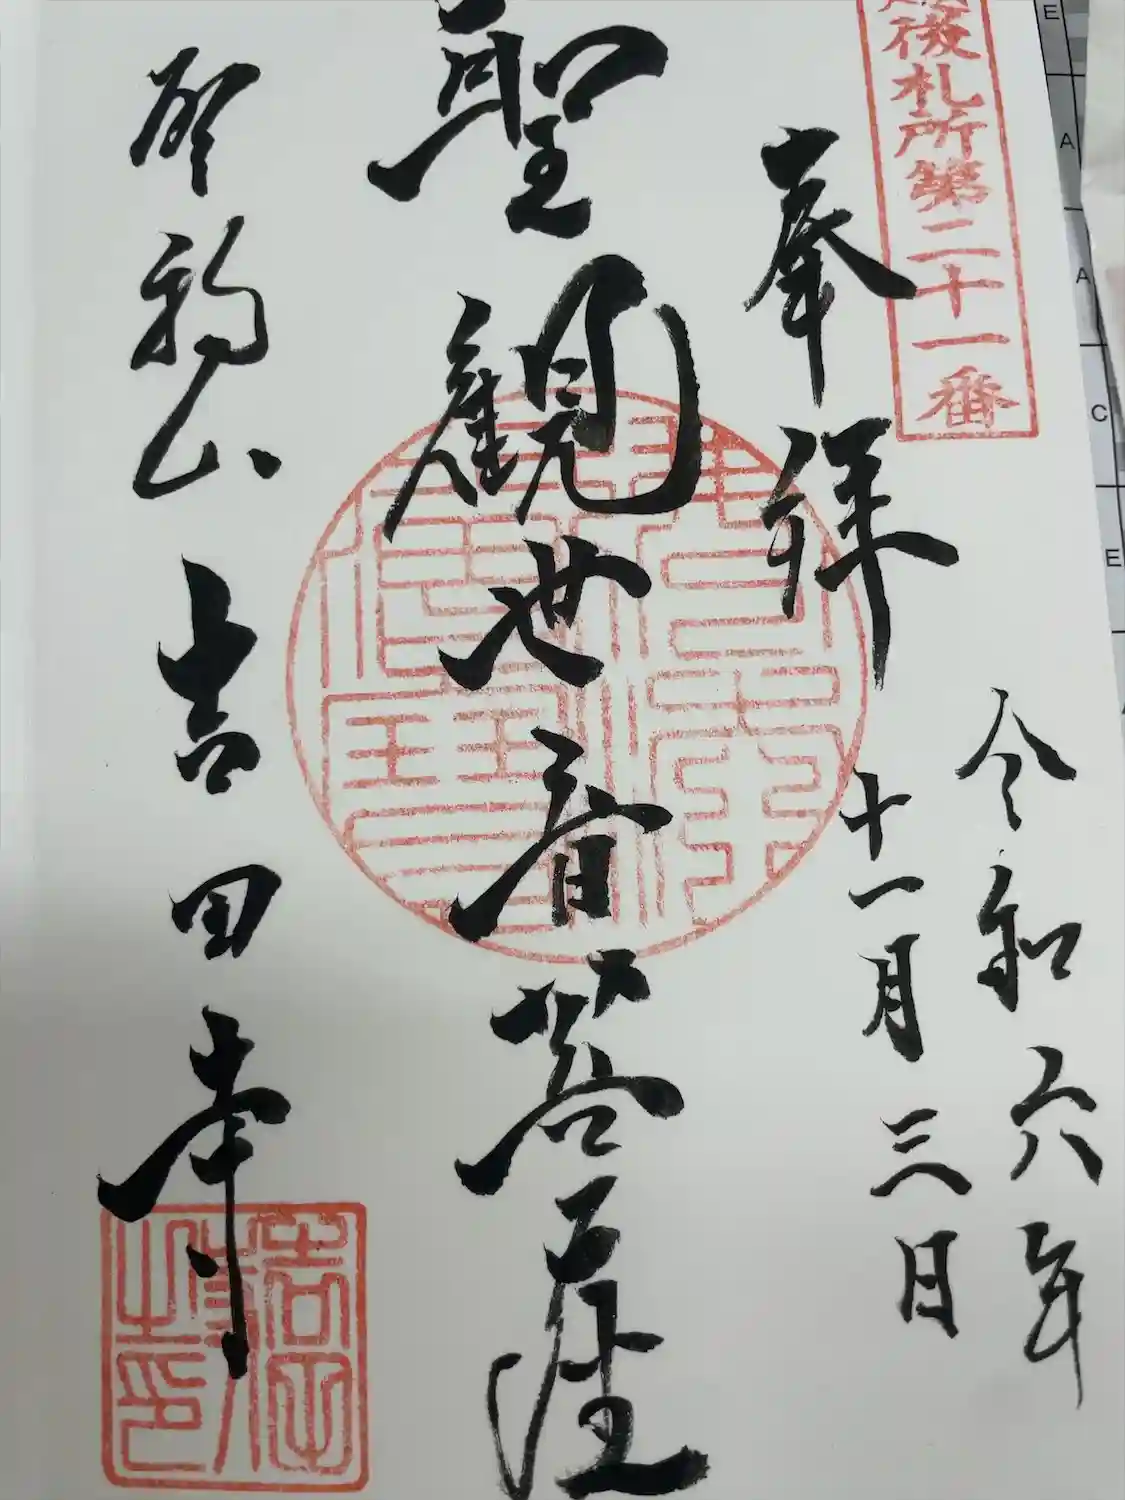 後札所第二十一番
奉拝
令和六年
十一月三日
聖観世音菩薩
山 吉田寺
吉田寺之印